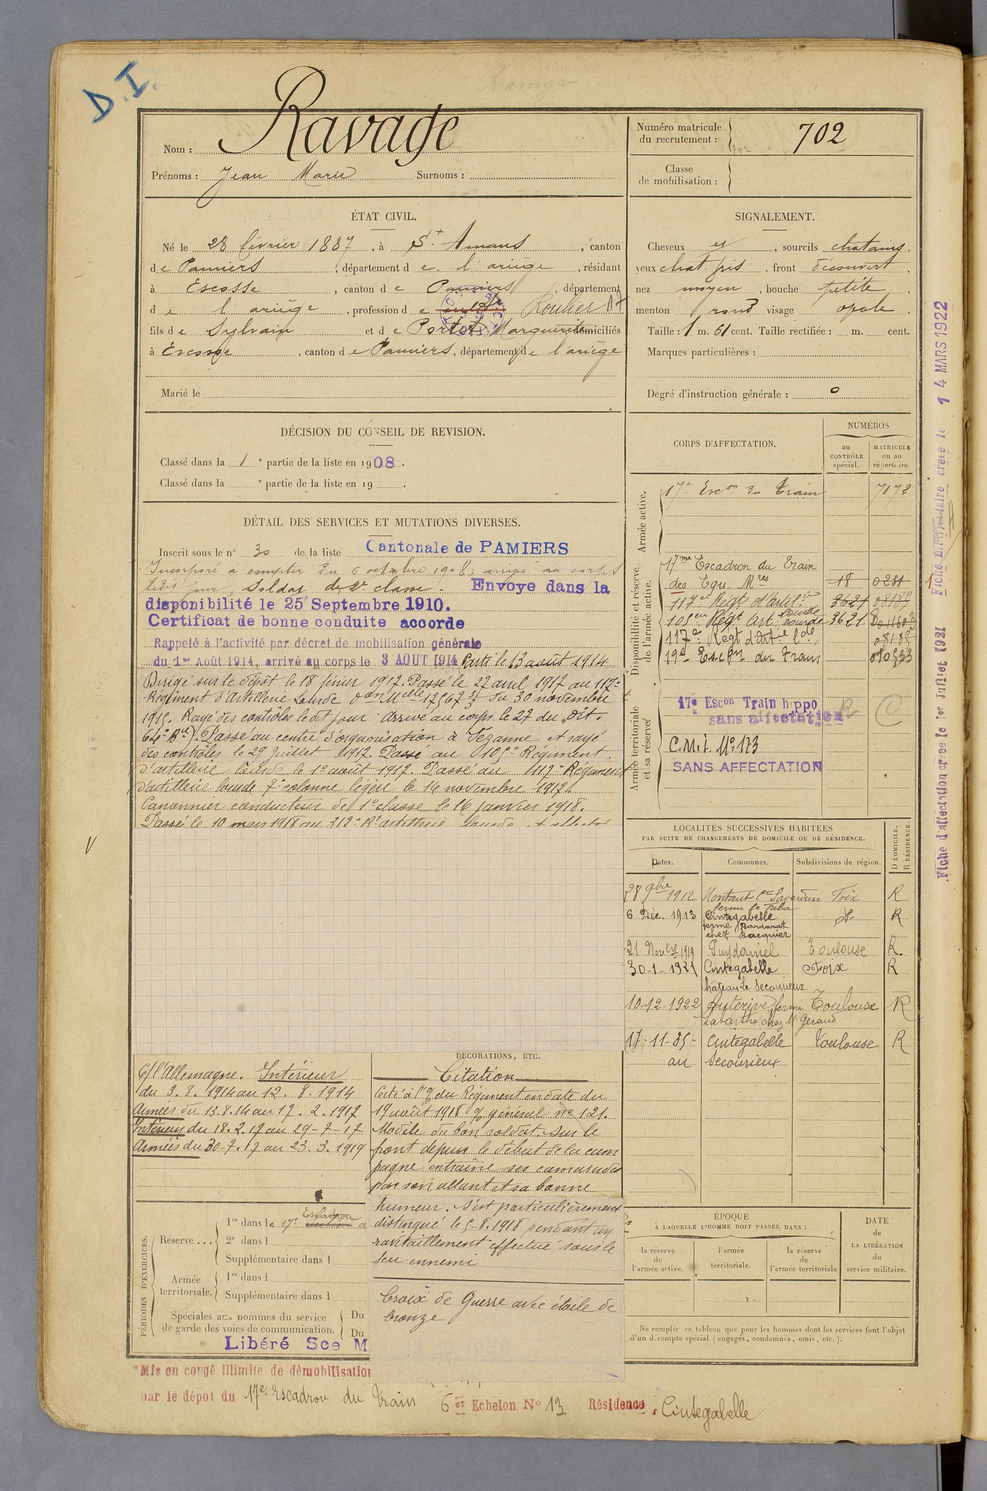 D.I.
Nom : Ravage
Prénoms : Jean Marie Surnoms :
Numéro matricule du recrutement : 702
Classe de mobilisation :
ÉTAT CIVIL.
Né le 28 février 1887, à St Amans, canton
de Pamiers, département de l'ariège, résidant
à Escosse, canton de Pamiers, département
de l'ariège, profession de
fils de Sylvain et de Portet Marguerite domiciliés
à Escosse, canton de Pamiers, département de l'ariège
Marié le
SIGNALEMENT.
Cheveux et, sourcils chatains.
yeux chat. gris, front découvert,
nez moyen, bouche petite,
menton rond visage ovale.
Taille : 1 m. 61 cent. Taille rectifiée : m. cent.
Marques particulières :
Degré d'instruction générale : 0
DÉCISION DU CONSEIL DE REVISION.
Classé dans la 1e partie de la liste en 1908.
Classé dans la e partie de la liste en 19 .
DÉTAIL DES SERVICES ET MUTATIONS DIVERSES.
Inscrit sous le n° 30 de la liste Cantonale de PAMIERS
Incorporé à compter du 6 octobre 1908, arrivé au corps
ledit jour, soldat de 2e classe. Envoyé dans la
disponibilité le 25 Septembre 1910.
Certificat de bonne conduite accordé
Rappelé à l'activité par décret de mobilisation générale
du 1er Août 1914, arrivé au corps le 3 AOUT 1914 Parti le 13 août 1914
Dirigé sur le dépôt le 18 février 1917. Passé le 27 avril 1917 au 117e
Régiment d'Artillerie Lourde du 30 novembre
1915. Rayé des contrôles le dit jour arrivé au corps le 27 du dit.
Passé au centre d'organisation à Sézanne et rayé
des contrôles le 29 Juillet 1917. Passé au 105e Régiment
d'artillerie lourde le 1er août 1917. Passé au 117e Régiment
d'artillerie lourde 7e colonne légère le 14 novembre 1917.
Canonnier conducteur de 1e classe le 16 janvier 1918.
Passé le 10 mars 1918 au
CORPS D'AFFECTATION.
NUMÉROS
au CONTRÔLE spécial.
MATRICULE ou au répertoire.
Armée active.
17e Escon du Train 7172
Disponibilité et réserve de l'armée active.
17me Escadron du Train
des Equ. Mres 18 0231
117e Régt d'Artil. Lourde 3621
105me Régt Art. Lourde 3621
117e Régt d'Art. Lde
19e Escon du Train
Armée territoriale et sa réserve
17e Escon Train hippo
sans affectation
C.M.I. N° 173
SANS AFFECTATION
LOCALITÉS SUCCESSIVES HABITÉES
PAR SUITE DE CHANGEMENTS DE DOMICILE OU DE RÉSIDENCE.
D DOMICILE. R RÉSIDENCE.
Dates. Communes. Subdivisions de région.
28 9bre 1912 Montaut Saverdun Foix R
6 Déc. 1913 Cintegabelle do R
21 Novbre 1919 Puydaniel Toulouse R.
30-1-1921 Cintegabelle Foix R
10-12-1922 Auterive ferme Toulouse R
17-11-35 Cintegabelle Toulouse R
au Secourieu
c/ l'Allemagne. Intérieur
du 3.8.1914 au 12.8.1914
Armées du 13.8.14 au 17.2.1917
Intérieur du 18.2.17 au 29-7-17
Armées du 30-7.17 au 23.3.1919
DÉCORATIONS, ETC.
Citation
Cité à l'O/ du Régiment en date du
19 août 1918 O/ général No 121.
Modèle du bon soldat. Sur le
front depuis le début de la cam
pagne entraîne ses camarades
par son allant et sa bonne
humeur. S'est particulièrement
distingué le 5.8.1918 pendant un
ravitaillement effectué sous le
feu ennemi
Croix de Guerre avec étoile de
bronze
PÉRIODES D'EXERCICES.
Réserve ...
1re dans le 17e Escadron
2e dans l
Supplémentaire dans l
Armée territoriale.
1re dans l
Supplémentaire dans l
Spéciales aux hommes du service de garde des voies de communication. Du Du
Libéré Sce M
ÉPOQUE
À LAQUELLE L'HOMME DOIT PASSER DANS :
la réserve de l'armée active.
l'armée territoriale.
la réserve de l'armée territoriale
DATE de LA LIBÉRATION du service militaire.
Ne remplir ce tableau que pour les hommes dont les services font l'objet
d'un compte spécial (engagés, condamnés, omis, etc.).
Mis en congé illimité de démobilisation
par le dépôt du 17e Escadron du Train 6e Echelon N° 13 Résidence Cintegabelle
Fiche d'affectation créée le 1er Juillet 1921
4 MARS 1922